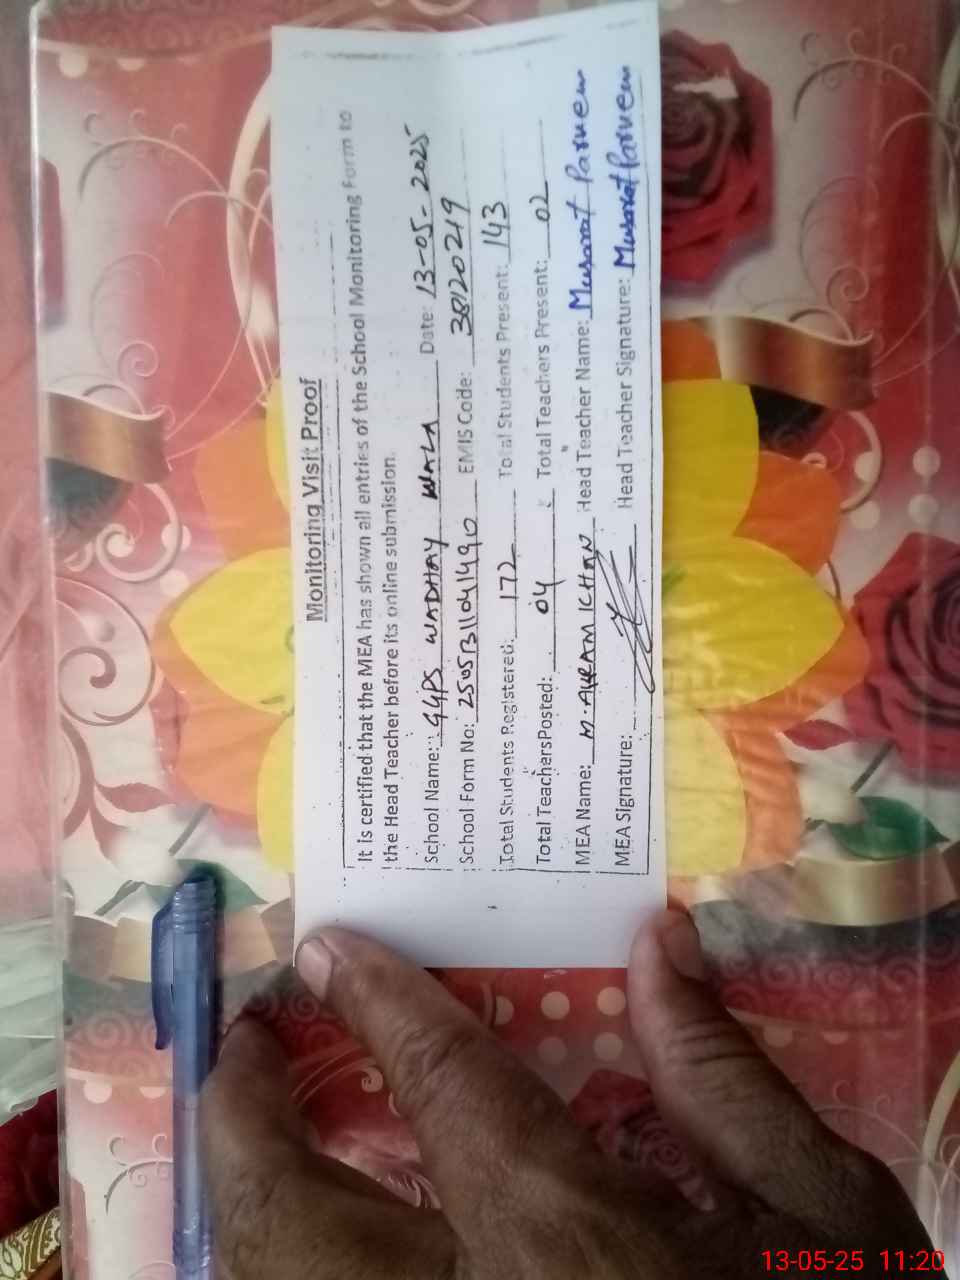 Monitoring Visit Proof
It is certified that the MEA has shown all entries of the School Monitoring Form to
the Head Teacher before its online submission.
School Name: GGPS WADHAY WALA Date: 13-05-2025
School Form No: 2505B11041490 EMIS Code: 38120219
Total Students Registered: 172 Total Students Present: 143
Total Teachers Posted: 04 Total Teachers Present: 02
MEA Name: M. AKRAM KHAN Head Teacher Name: Musarat Parveen
MEA Signature: Head Teacher Signature: Musarat Parveen
13-05-25 11:20